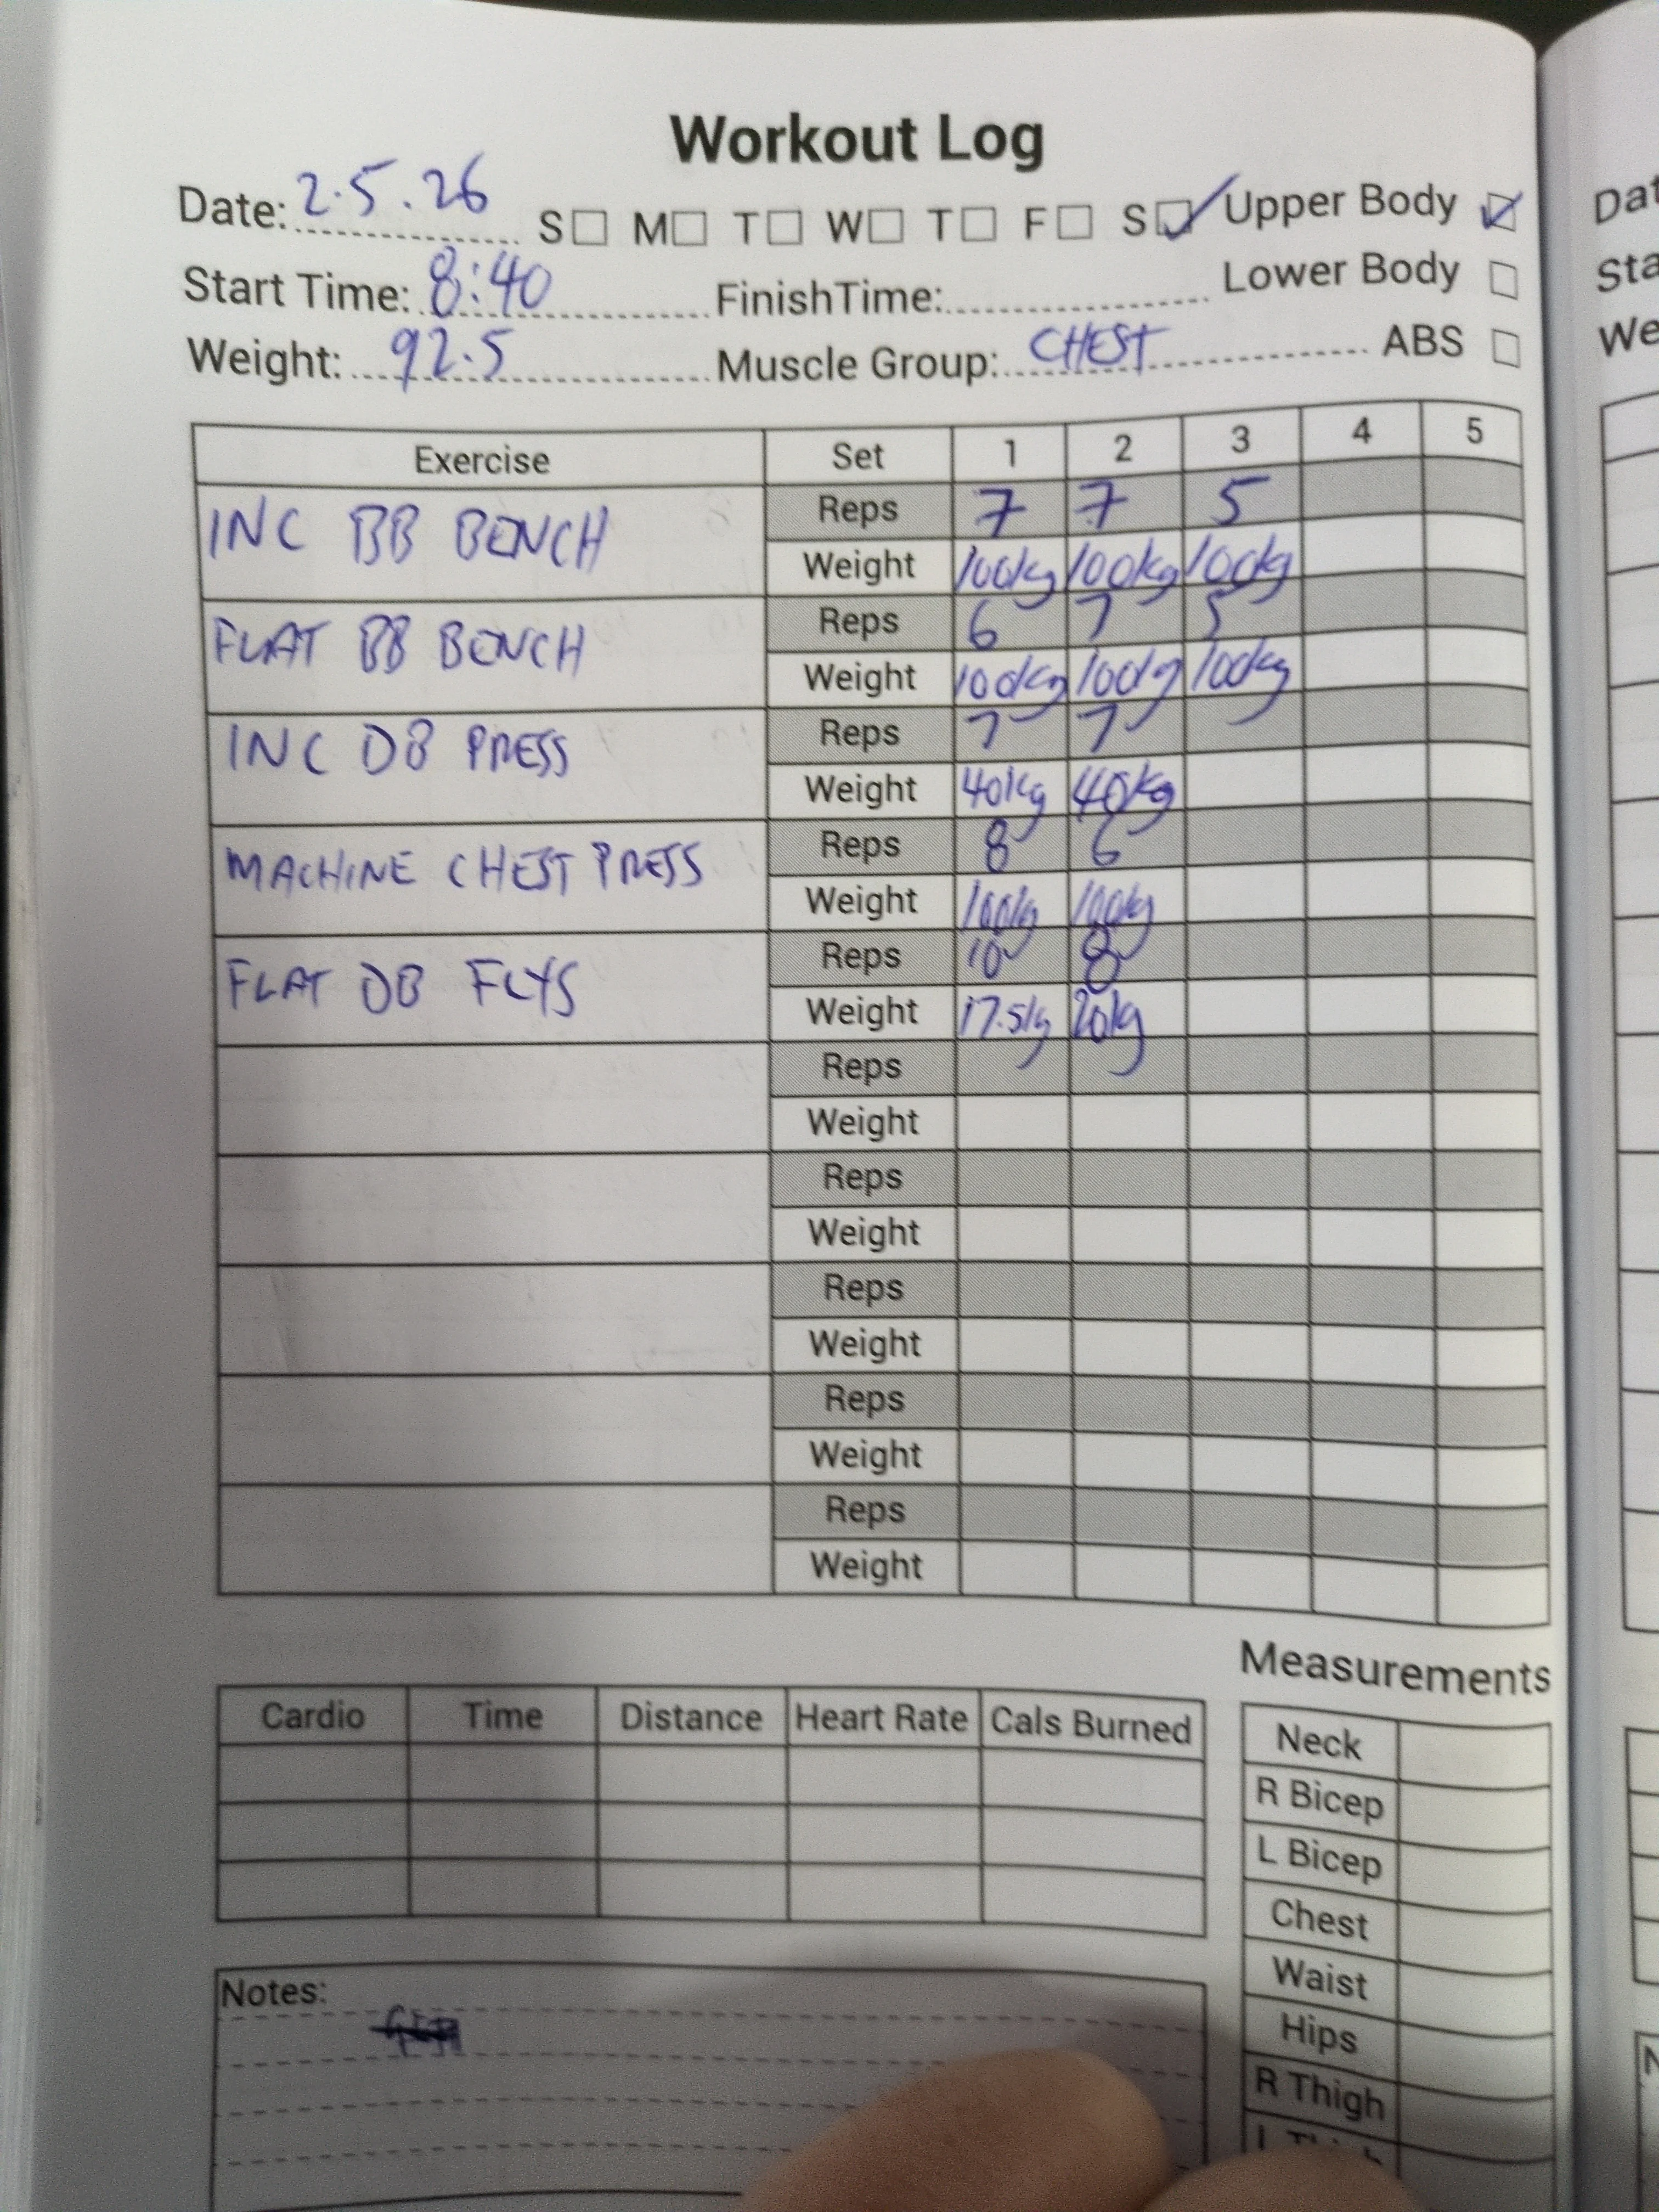 Workout Log
Date: 2.5.26 S M T W T F S Upper Body
Start Time: 8:40 FinishTime: Lower Body
Weight: 92.5 Muscle Group: CHEST ABS
Exercise Set 1 2 3 4 5
INC BB BENCH Reps 7 7 5
Weight 100kg 100kg 100kg
FLAT BB BENCH Reps 6 7 5
Weight 100kg 100kg 100kg
INC DB PRESS Reps 7 7
Weight 40kg 40kg
MACHINE CHEST PRESS Reps 8 6
Weight 100kg 100kg
FLAT DB FLYS Reps 10 8
Weight 17.5kg 20kg
Reps
Weight
Reps
Weight
Reps
Weight
Reps
Weight
Reps
Weight
Measurements
Cardio Time Distance Heart Rate Cals Burned
Neck
R Bicep
L Bicep
Chest
Waist
Hips
R Thigh
Notes:
Dat
Sta
We